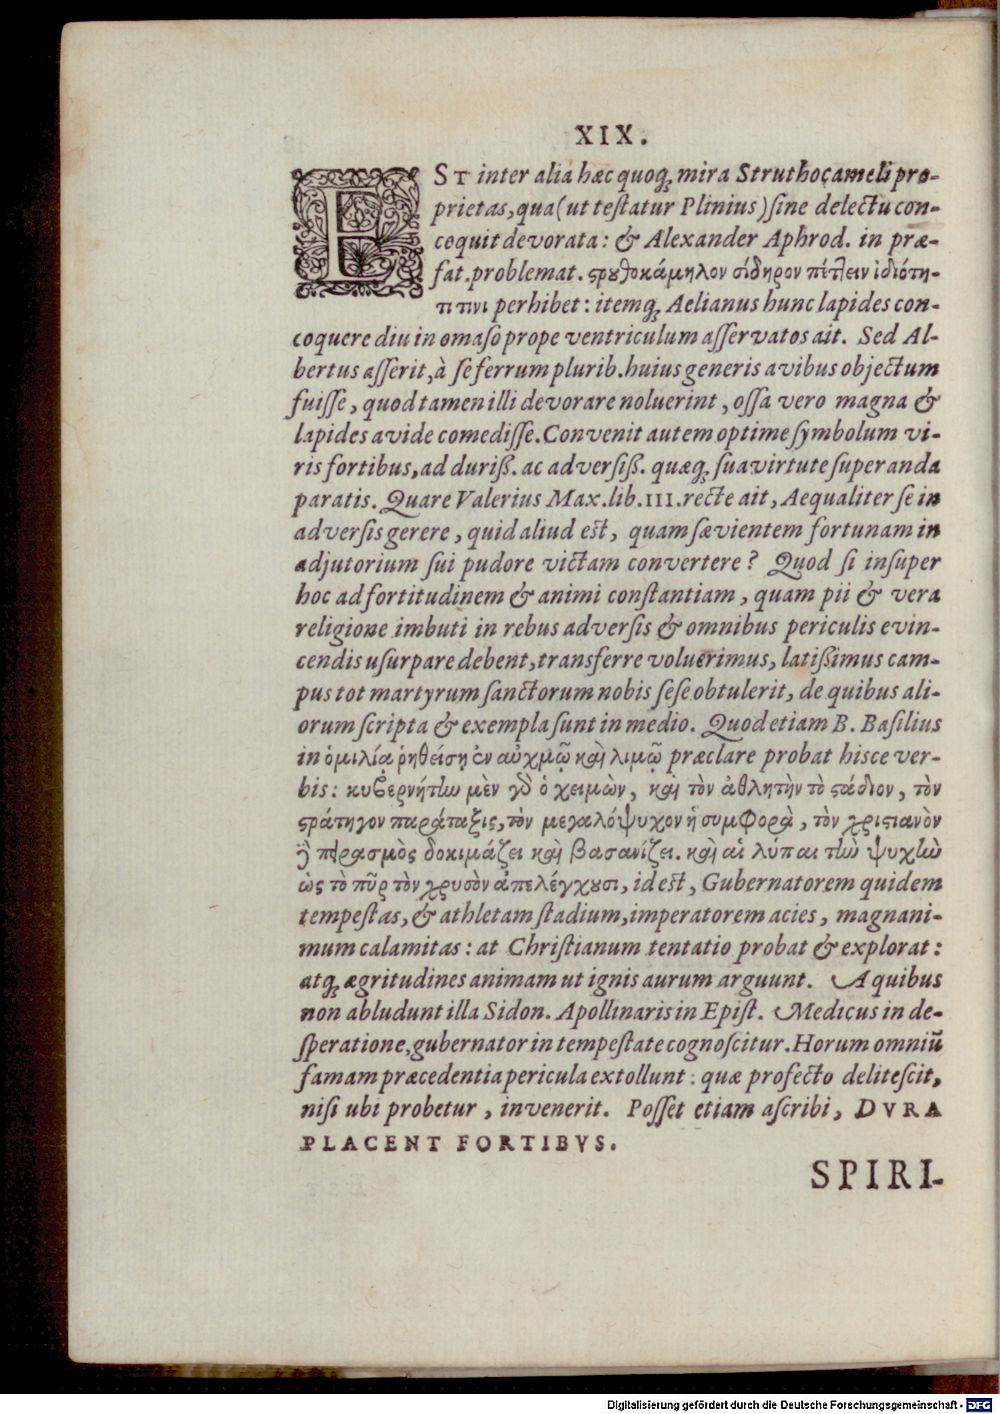 XIX.
EST inter alia hæc quoq; mira Struthocameli pro-
prietas, qua (ut testatur Plinius) sine delectu con-
coquit devorata: & Alexander Aphrod. in præ-
fat. problemat. ςρȣθοκάμηλον σίδηρον πέτ]ειν ἰδιότη-
τι τινι perhibet: itemq; Aelianus hunc lapides con-
coquere diu in omaso prope ventriculum asservatos ait. Sed Al-
bertus asserit, à se ferrum plurib. huius generis avibus objectum
fuisse, quod tamen illi devorare noluerint, ossa vero magna &
lapides avide comedisse. Convenit autem optime symbolum vi-
ris fortibus, ad duriß. ac adversiß. quæq; sua virtute superanda
paratis. Quare Valerius Max. lib. III. recte ait, Aequaliter se in
adversis gerere, quid aliud est, quam sævientem fortunam in
adjutorium sui pudore victam convertere? Quod si insuper
hoc ad fortitudinem & animi constantiam, quam pii & vera
religione imbuti in rebus adversis & omnibus periculis evin-
cendis usurpare debent, transferre voluerimus, latißimus cam-
pus tot martyrum sanctorum nobis sese obtulerit, de quibus ali-
orum scripta & exempla sunt in medio. Quod etiam B. Basilius
in ὁμιλίᾳ ῥηθείσῃ ἐν αὐχμῷ καὶ λιμῷ præclare probat hisce ver-
bis: κυβερνήτην μὲν γδ ὁ χειμὼν, καὶ τὸν ἀθλητὴν τὸ ςάδιον, τὸν
ςράτηγον παράταξις, τὸν μεγαλόψυχον ἡ συμφορὰ, τὸν χριςιανὸν
ὁ πειρασμὸς δοκιμάζει καὶ βασανίζει. καὶ αἱ λύπαι τὴν ψυχὴν
ὡς τὸ πῦρ τὸν χρυσὸν ἀπελέγχȣσι, id est, Gubernatorem quidem
tempestas, & athletam stadium, imperatorem acies, magnani-
mum calamitas: at Christianum tentatio probat & explorat:
atq; ægritudines animam ut ignis aurum arguunt. A quibus
non abludunt illa Sidon. Apollinaris in Epist. Medicus in de-
speratione, gubernator in tempestate cognoscitur. Horum omniū
famam præcedentia pericula extollunt: quæ profecto delitescit,
nisi ubi probetur, invenerit. Posset etiam ascribi, DVRA
PLACENT FORTIBVS.
SPIRI-
Digitalisierung gefördert durch die Deutsche Forschungsgemeinschaft - DFG